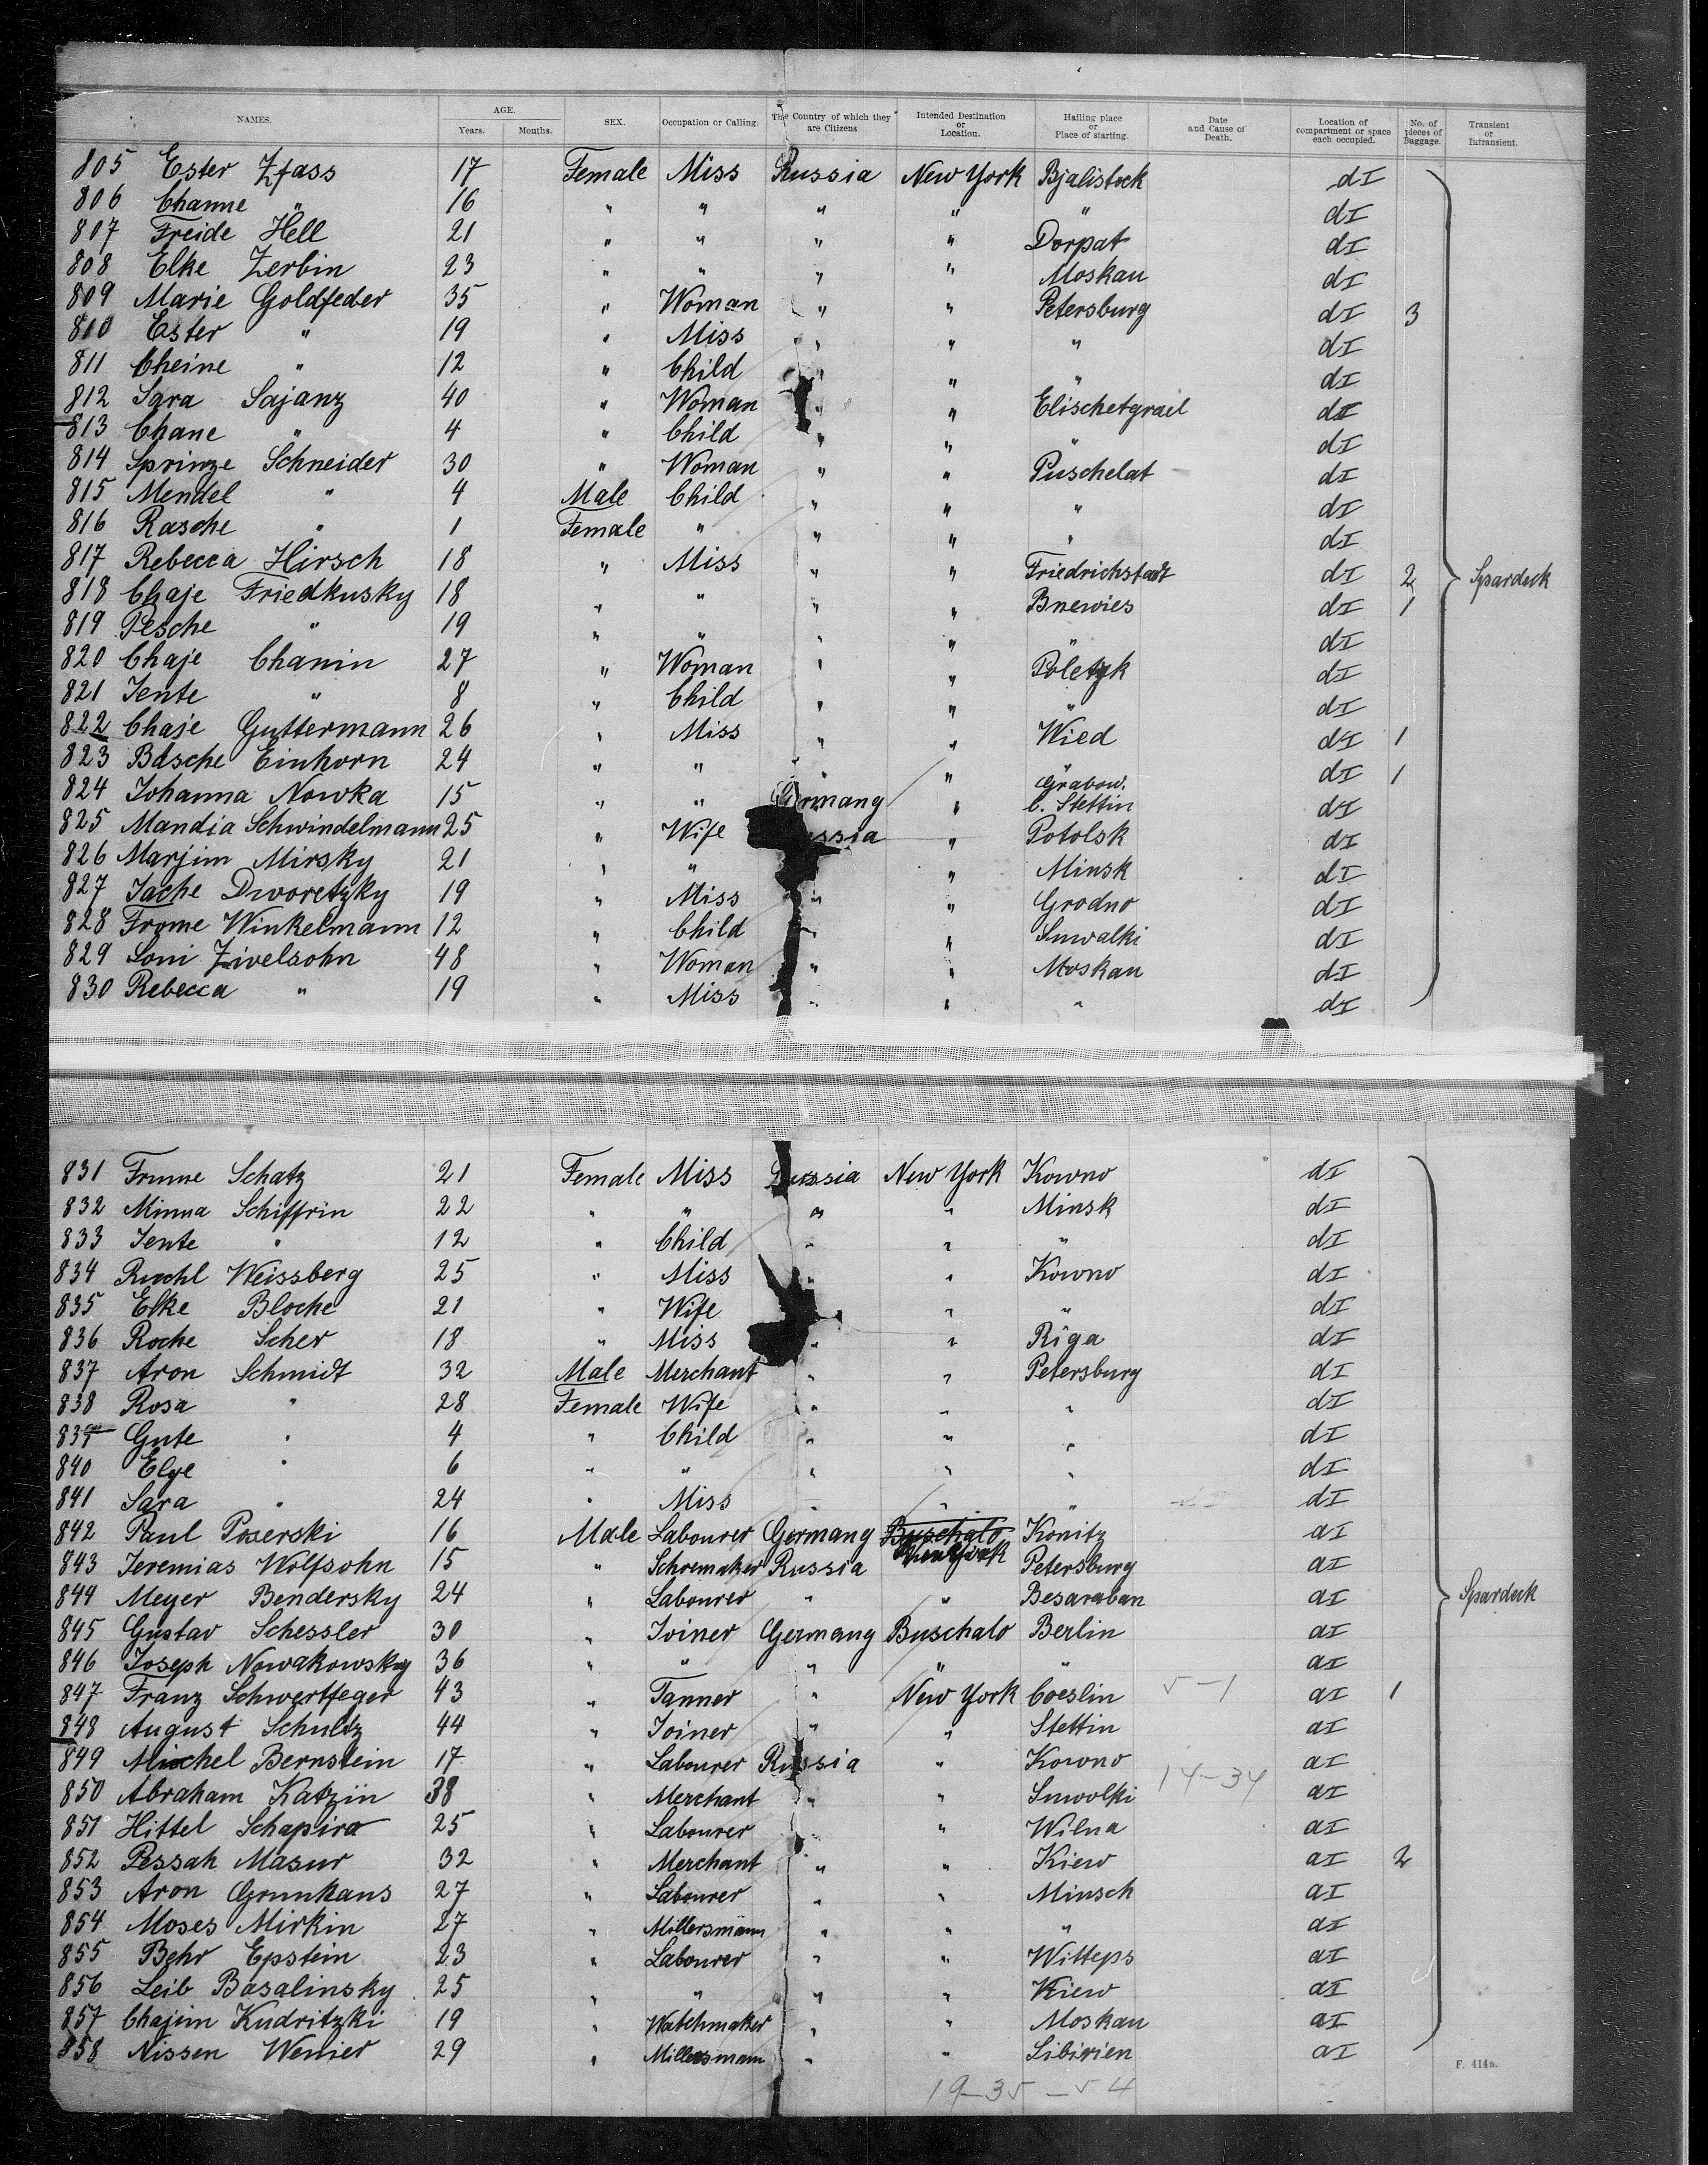 NAMES. AGE. Years. Months. SEX. Occupation or Calling. The Country of which they are Citizens Intended Destination or Location. Hailing place or Place of starting. Date and Cause of Death. Location of compartment or space each occupied. No. of pieces of Baggage. Transient or Intransient.
805 Ester Zfass 17 Female Miss Russia New York Bjalistock dI
806 Channe " 16 " " " " " dI
807 Freide Hell 21 " " " " Dorpat dI
808 Elke Zerbin 23 " " " " Moskau dI
809 Marie Goldfeder 35 " Woman " " Petersburg dI 3
810 Ester " 19 " Miss " " " dI
811 Cheine " 12 " Child " " " dI
812 Sara Sajanz 40 " Woman " " Elischetgrael dI
813 Chane " 4 " Child " " " dI
814 Sprinze Schneider 30 " Woman " " Puschelat dI
815 Mendel " 4 Male Child " " " dI
816 Rasche " 1 Female " " " " dI
817 Rebecca Hirsch 18 " Miss " " Friedrichstadt dI 2 Spardeck
818 Chaje Friedkusky 18 " " " " Bnewies dI 1
819 Pesche " 19 " " " " " dI
820 Chaje Chanin 27 " Woman " " Poletzk dI
821 Jente " 8 " Child " " " dI
822 Chaje Guttermann 26 " Miss " " Wied dI 1
823 Basche Einhorn 24 " " " " " dI 1
824 Johanna Nowka 15 " " Germany " Grabow. b. Stettin dI
825 Mandia Schwindelmann 25 " Wife Russia " Potolsk dI
826 Marjim Mirsky 21 " " " Minsk dI
827 Jache Dworetzky 19 " Miss " " Grodno dI
828 Frome Winkelmann 12 " Child " " Suwalki dI
829 Soni Zivelsohn 48 " Woman " " Moskau dI
830 Rebecca " 19 " Miss " " " dI
831 Frume Schatz 21 Female Miss Russia New York Kowno dI
832 Minna Schiffrin 22 " " " " Minsk dI
833 Jente " 12 " Child " " " dI
834 Ruchl Weissberg 25 " Miss " " Kowno dI
835 Elke Bloche 21 " Wife " " " dI
836 Roche Scher 18 " Miss " " Riga dI
837 Aron Schmidt 32 Male Merchant " " Petersburg dI
838 Rosa " 28 Female Wife " " " dI
839 Gute " 4 " Child " " " dI
840 Elge " 6 " " " " " dI
841 Sara " 24 " Miss " " " dI
842 Paul Poserski 16 Male Labourer Germany Buschalo Konitz aI
843 Jeremias Wolfsohn 15 " Schoemaker Russia New York Petersburg aI
844 Meyer Bendersky 24 " Labourer " " Besaraban aI Spardeck
845 Gustav Schessler 30 " Joiner Germany Buschalo Berlin aI
846 Joseph Nowakowsky 36 " " " " " aI
847 Franz Schwertfeger 43 " Tanner " New York Coeslin aI 1
848 August Schultz 44 " Joiner " " Stettin aI
849 Michel Bernstein 17 " Labourer Russia " Kowno aI
850 Abraham Katzin 38 " Merchant " " Suwolki 14-34 aI
851 Hittel Schapira 25 " Labourer " " Wilna aI
852 Pessah Masur 32 " Merchant " " Kiew aI 2
853 Aron Grunkaus 27 " Labourer " " Minsch aI
854 Moses Mirkin 27 " Millersmann " " " aI
855 Behr Epstein 23 " Labourer " " Witteps aI
856 Leib Basalinsky 25 " " " " Kiew aI
857 Chajim Kudritzki 19 " Watchmaker " " Moskau aI
858 Nissen Wenier 29 " Millersmann " " Sibirien aI
F. 414a.
19-35-54